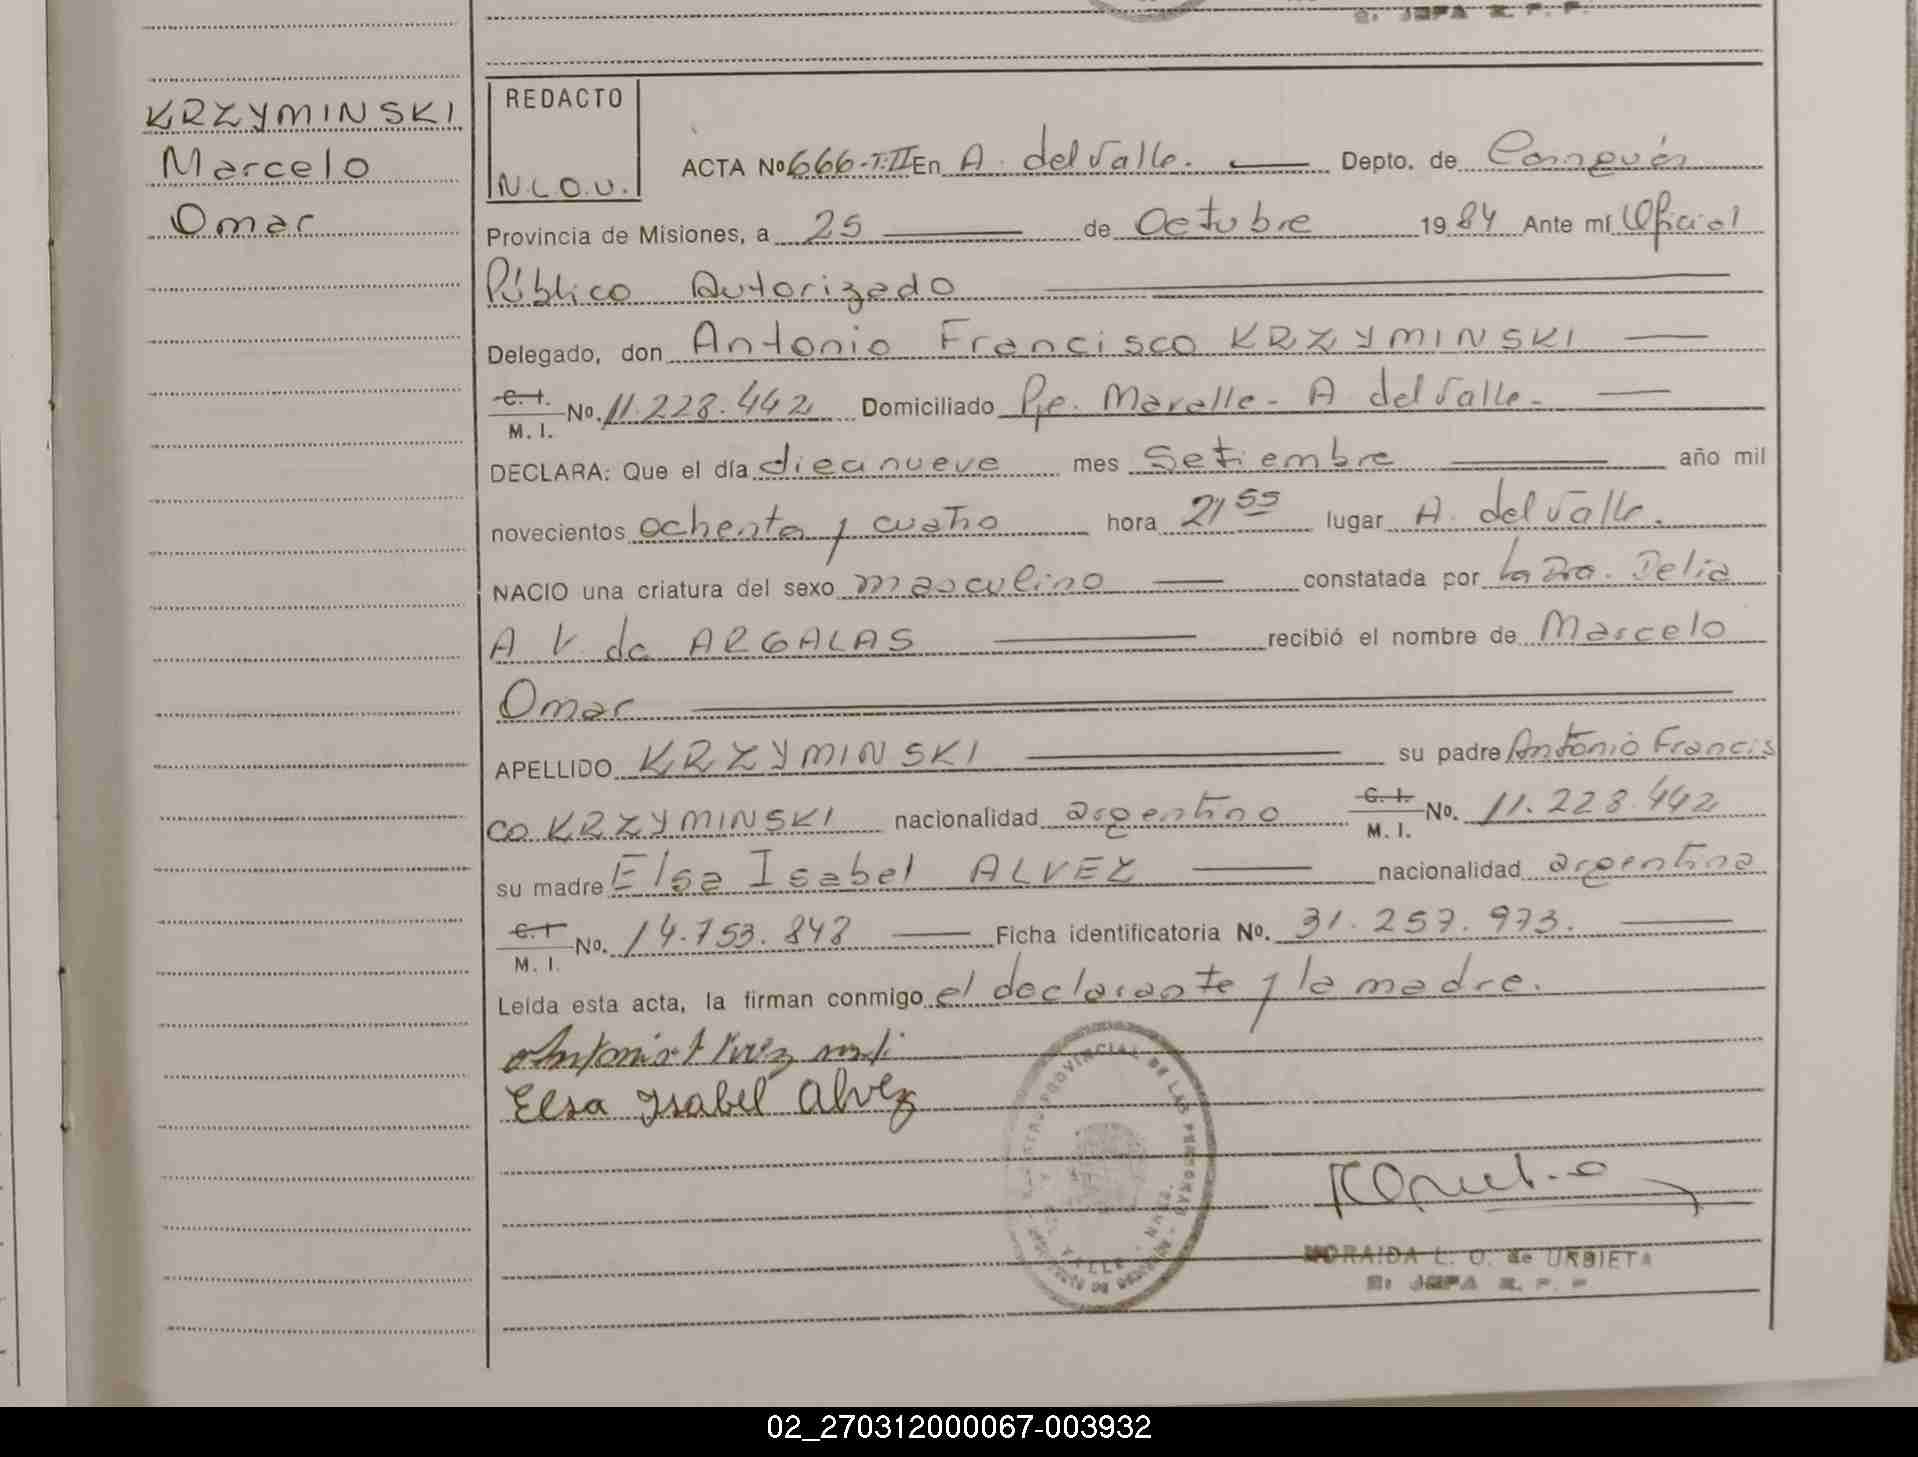 KRZYMINSKI
Marcelo
Omar
REDACTO
N.L.O.U.
ACTA No 666-T.II En A. del Valle. Depto. de Caingúas
Provincia de Misiones, a 25 de Octubre 1984 Ante mí Oficial
Público Autorizado
Delegado, don Antonio Francisco KRZYMINSKI
C. I. M. I. No. 11.228.442 Domiciliado Pje. Maralle - A del Valle -
DECLARA: Que el día diecinueve mes Setiembre año mil
novecientos ochenta y cuatro hora 21 55 lugar A. del Valle.
NACIO una criatura del sexo masculino constatada por la Dra. Delia
A V. de ARGALAS recibió el nombre de Marcelo
Omar
APELLIDO KRZYMINSKI su padre Antonio Francis
co KRZYMINSKI nacionalidad argentino C. I. M. I. No. 11.228.442
su madre Elsa Isabel ALVEZ nacionalidad argentina
C. I M. I. No. 14.753.848 Ficha identificatoria No. 31.257.973.
Leída esta acta, la firman conmigo el declarante y la madre.
Elsa Isabel Alvez
PROVINCIAL DE LAS PERSONAS
NORAIDA L. O. de URBIETA
JEFA R. P. P.
02_270312000067-003932